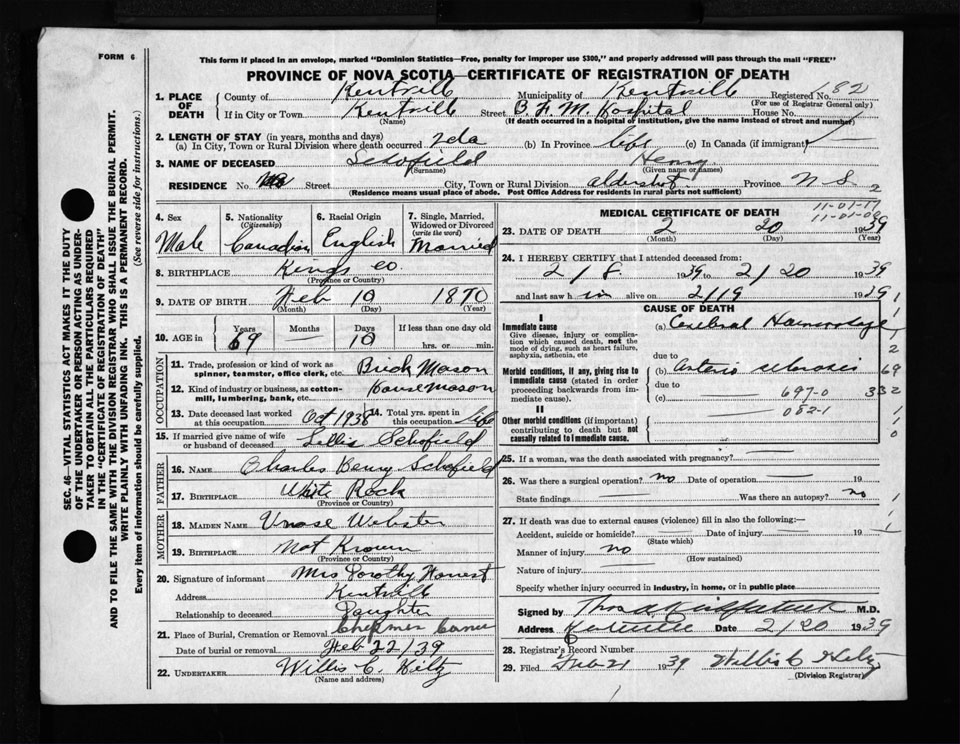 FORM 6
This form if placed in an envelope, marked "Dominion Statistics—Free, penalty for improper use $300," and properly addressed will pass through the mail "FREE"
PROVINCE OF NOVA SCOTIA—CERTIFICATE OF REGISTRATION OF DEATH
1. PLACE OF DEATH
County of Kentville Municipality of Kentville Registered No. 82
(For use of Registrar General only)
If in City or Town Kentville Street B. F. M. Hospital House No.
(Name) (If death occurred in a hospital or institution, give the name instead of street and number)
2. LENGTH OF STAY (in years, months and days)
(a) In City, Town or Rural Division where death occurred 7 da (b) In Province life (c) In Canada (if immigrant)
3. NAME OF DECEASED Schofield Henry
(Surname) (Given name or names)
RESIDENCE No. Street City, Town or Rural Division aldershot Province N S 2
(Residence means usual place of abode. Post Office Address for residents in rural parts not sufficient)
4. Sex Male
5. Nationality (Citizenship) Canadian
6. Racial Origin English
7. Single, Married, Widowed or Divorced (write the word) Married
8. BIRTHPLACE Kings co
(Province or Country)
9. DATE OF BIRTH Feb 10 1870
(Month) (Day) (Year)
10. AGE in Years 69 Months — Days 10 If less than one day old hrs. or min.
OCCUPATION
11. Trade, profession or kind of work as spinner, teamster, office clerk, etc. Brick Mason
12. Kind of industry or business, as cotton-mill, lumbering, bank, etc. House mason
13. Date deceased last worked at this occupation Oct 1938 14. Total yrs. spent in this occupation life
15. If married give name of wife or husband of deceased Lillis Schofield
FATHER
16. NAME Charles Henry Schofield
17. BIRTHPLACE White Rock
(Province or Country)
MOTHER
18. MAIDEN NAME Webster
19. BIRTHPLACE Not Known
(Province or Country)
20. Signature of informant Mrs Dorothy
Address Kentville
Relationship to deceased Daughter
21. Place of Burial, Cremation or Removal
Date of burial or removal Feb 22/39
22. UNDERTAKER Willis C. Hiltz
(Name and address)
MEDICAL CERTIFICATE OF DEATH
11-01-17
11-01-09
23. DATE OF DEATH 2 20 1939
(Month) (Day) (Year)
24. I HEREBY CERTIFY that I attended deceased from:
2/8. 1939 to 2/20 1939
and last saw h im alive on 2/19 1939
CAUSE OF DEATH
I
Immediate cause
Give disease, injury or complication which caused death, not the mode of dying, such as heart failure, asphyxia, asthenia, etc
(a) Cerebral Haemorrhage
due to
Morbid conditions, if any, giving rise to immediate cause (stated in order proceeding backwards from immediate cause).
(b) Arterio sclerosis
due to
(c) — 697-0
II
Other morbid conditions (if important) contributing to death but not causally related to immediate cause.
— 082-1
1
1
2
69
332
1
1
0
25. If a woman, was the death associated with pregnancy? —
26. Was there a surgical operation? no Date of operation — 19
State findings — Was there an autopsy? no
27. If death was due to external causes (violence) fill in also the following:—
Accident, suicide or homicide? — Date of injury — 19
(State which)
Manner of injury no
(How sustained)
Nature of injury —
Specify whether injury occurred in industry, in home, or in public place
Signed by Thos. A. Kirkpatrick M.D.
Address Kentville Date 2/20 1939
28. Registrar's Record Number
29. Filed Feb 21 1939 Willis C Hiltz
(Division Registrar)
SEC. 46—VITAL STATISTICS ACT MAKES IT THE DUTY
OF THE UNDERTAKER OR PERSON ACTING AS UNDER-
TAKER TO OBTAIN ALL THE PARTICULARS REQUIRED
IN THE "CERTIFICATE OF REGISTRATION OF DEATH"
AND TO FILE THE SAME WITH THE DIVISION REGISTRAR WHO SHALL ISSUE THE BURIAL PERMIT.
WRITE PLAINLY WITH UNFADING INK. THIS IS A PERMANENT RECORD.
Every item of information should be carefully supplied. (See reverse side for instructions.)